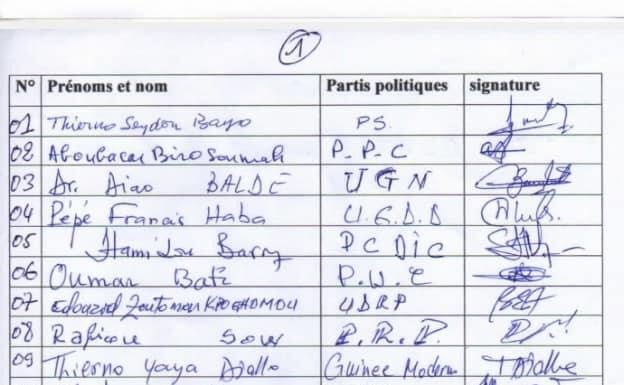 1
N° Prénoms et nom Partis politiques signature
01 Thierno Seydou Bayo P.S.
02 Aboubacar Biro Soumah P.P.C
03 Dr. BALDE U G N
04 Pépé Francis Haba U.G.D.D
05 Hamidou Barry P C DIC
06 Oumar
07 Edouard Zoutomou KPOGHOMOU UDRP
08 Sow P.R.P.
09 Thierno Yaya Diallo Guinee Moderne